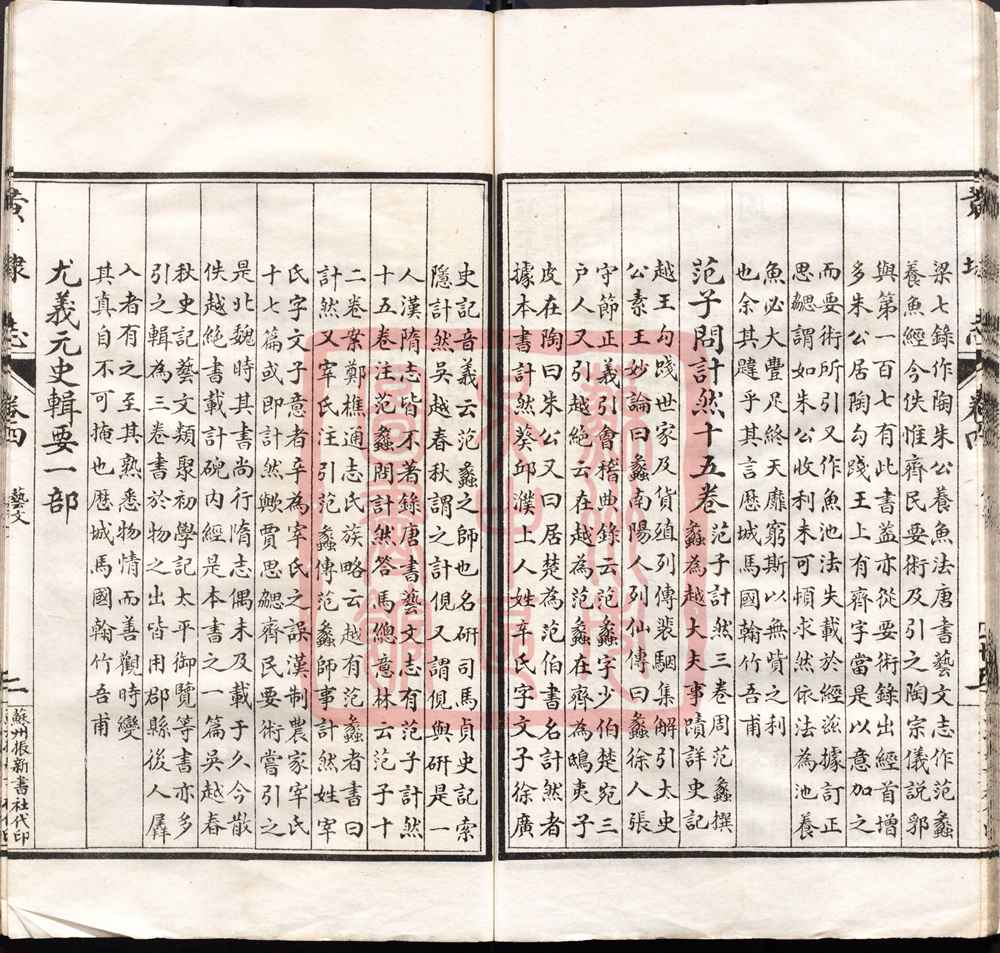 梁七錄作陶朱公養魚法唐書藝文志作范蠡
養魚經今佚惟齊民要術及引之陶宗儀説郛
與第一百七有此書葢亦從要術錄出經首增
多朱公居陶勾踐王上有齊字當是以意加之
而要術所引又作魚池法失載於經兹據訂正
思勰謂如朱公收利未可頓求然依法為池養
魚必大豐足終天靡窮斯以無貲之利
也余其韙乎其言歴城馬國翰竹吾甫
范子問計然十五卷
范子計然三卷周范蠡撰
蠡為越大夫事蹟詳史記
越王勾踐世家及貨殖列傳裴駰集解引太史
公素王妙論曰蠡南陽人列仙傳曰蠡徐人張
守節正義引會稽典錄云范蠡字少伯楚宛三
户人又引越絶云在越為范蠡在齊為鴟夷子
皮在陶曰朱公又曰居楚為范伯書名計然者
據本書計然葵邱濮上人姓辛氏字文子徐廣
史記音義云范蠡之師也名研司馬貞史記索
隱計然吳越春秋謂之計倪又謂倪與研是一
人漢隋志皆不著錄唐書藝文志有范子計然
十五卷注范蠡問計然答馬總意林云范子十
二卷案鄭樵通志氏族略云越有范蠡者書曰
計然又宰氏注引范蠡傳范蠡師事計然姓宰
氏字文子意者辛為宰氏之誤漢制農家宰氏
十七篇或即計然歟賈思勰齊民要術嘗引之
是北魏時其書尚行隋志偶未及載于久今散
佚越絶書載計硯内經是本書之一篇吳越春
秋史記藝文類聚初學記太平御覽等書亦多
引之輯為三卷書於物之出皆用郡縣後人羼
入者有之至其熟悉物情而善觀時變
其真自不可掩也歴城馬國翰竹吾甫
尤義元史輯要一部
志
卷四
藝文
二
蘇州振新書社代印